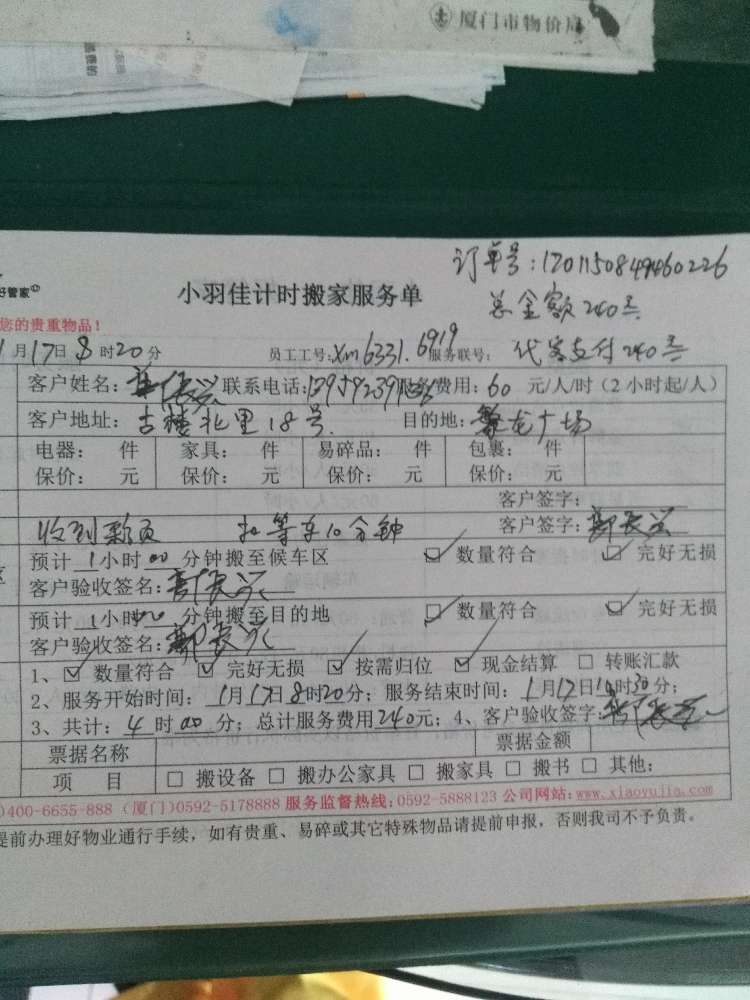 厦门市物价局
订单号:1701150849460226
好管家
小羽佳计时搬家服务单
总金额240元
您的贵重物品!
1月17日8时20分 员工工号:xm6331.6919 服务联号: 代客支付240元
客户姓名: 联系电话: 费用:60元/人/时(2小时起/人)
客户地址:古楼北里18号 目的地:龙广场
电器: 件 家具: 件 易碎品: 件 包裹: 件
保价: 元 保价: 元 保价: 元 保价: 元
客户签字:
收到款项 扣等车10分钟 客户签字:
预计1小时00分钟搬至候车区 ☑数量符合 ☑完好无损
客户验收签名:
预计1小时00分钟搬至目的地 ☑数量符合 ☑完好无损
客户验收签名:
1、☑数量符合 ☑完好无损 ☑按需归位 ☑现金结算 □转账汇款
2、服务开始时间:1月17日8时20分;服务结束时间:1月17日10时30分;
3、共计:4时00分;总计服务费用240元;4、客户验收签字:
票据名称 票据金额
项 目 □搬设备 □搬办公家具 □搬家具 □搬书 □其他:
)400-6655-888(厦门)0592-5178888 服务监督热线:0592-5888123 公司网站:www.xiaoyujia.com
提前办理好物业通行手续,如有贵重、易碎或其它特殊物品请提前申报,否则我司不予负责。